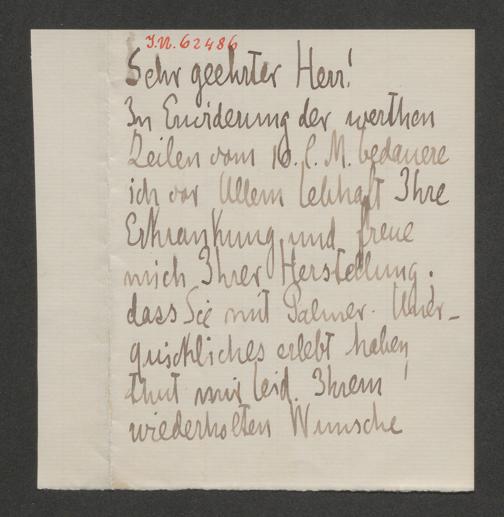 J.N. 62486
Sehr geehrter Herr!
In Erwiderung der werthen
Zeilen vom 10. l. M. bedauere
ich vor Allem lebhaft Ihre
Erkrankung und freue
mich Ihrer Herstellung.
dass Sie mit Palmer. Uner-
quickliches erlebt haben,
thut mir leid. Ihrem
wiederholten Wunsche